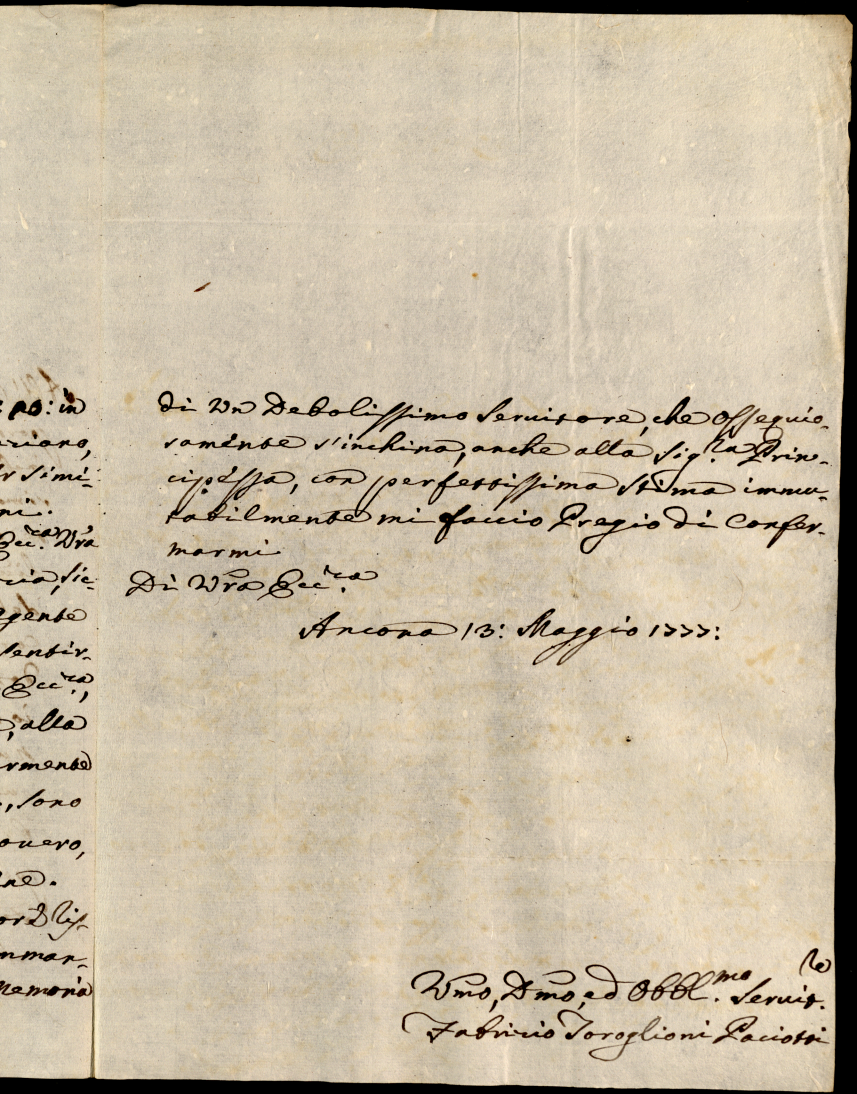 : po: in
riano,
r simi-
ni.
Ecc.ca Vra
cia, sic-
gente
sentir-
Ecc.za,
, alla
rmente
, sono
overo,
ne.
nmar-
memoria
di Vn Debolissimo Servitore, che Ossequio-
samente s'inchina, anche alla Sig.ra Prin-
cipessa, con perfettissima stima immu-
tabilmente mi faccio Pregio di Confer-
marmi
Di Vra Ecc.za
Ancona 13: Maggio 1777:
Vmo, Dmo, ed Obbl.mo Servit.re
Fabrizio Toroglioni Paciotti